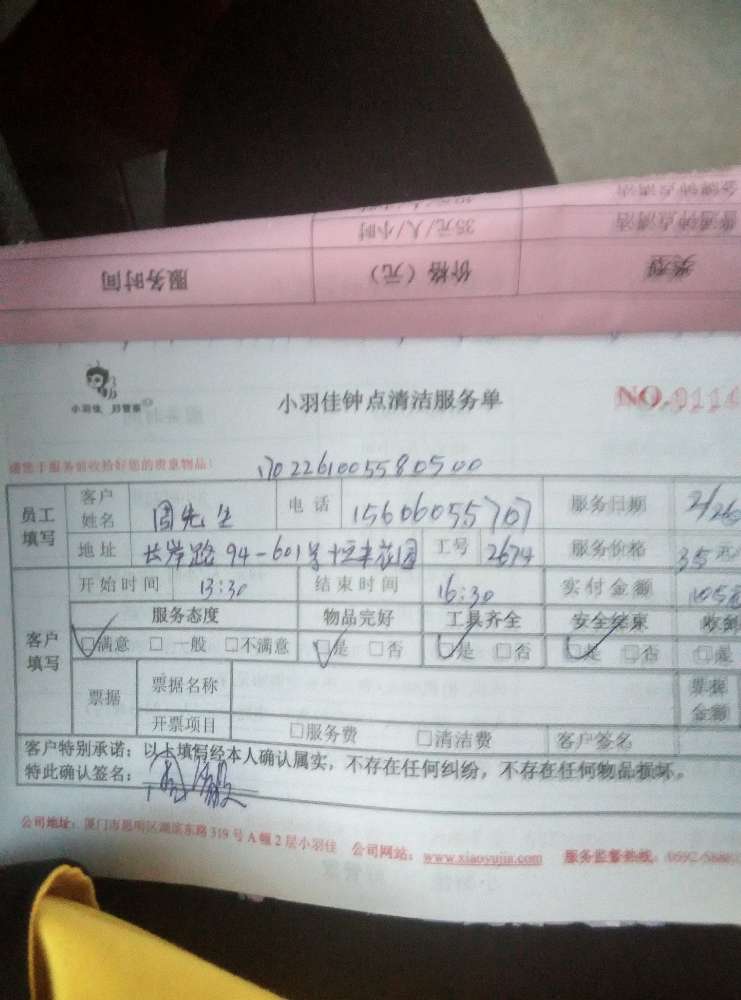 金牌钟点清洁
普通钟点清洁 35元/人/小时
类型 价格（元） 服务时间
小羽佳 好管家
小羽佳钟点清洁服务单 NO.0114
请您于服务前收拾好您的贵重物品！ 1702261005580500
员工填写 客户姓名 周先生 电话 15606055707 服务日期 2/26
地址 长岸路94-601号恒丰花园 工号 2674 服务价格 35元
客户填写 开始时间 13:30 结束时间 16:30 实付金额 105元
服务态度 物品完好 工具齐全 安全结束
☑满意 □一般 □不满意 ☑是 □否 ☑是 □否 ☑是 □否 □是
票据 票据名称 票据金额
开票项目 □服务费 □清洁费 客户签名
客户特别承诺：以上填写经本人确认属实，不存在任何纠纷，不存在任何物品损坏。
特此确认签名：
公司地址：厦门市思明区湖滨东路319号A幢2层小羽佳 公司网站：www.xiaoyujia.com 服务监督热线：0592-5688